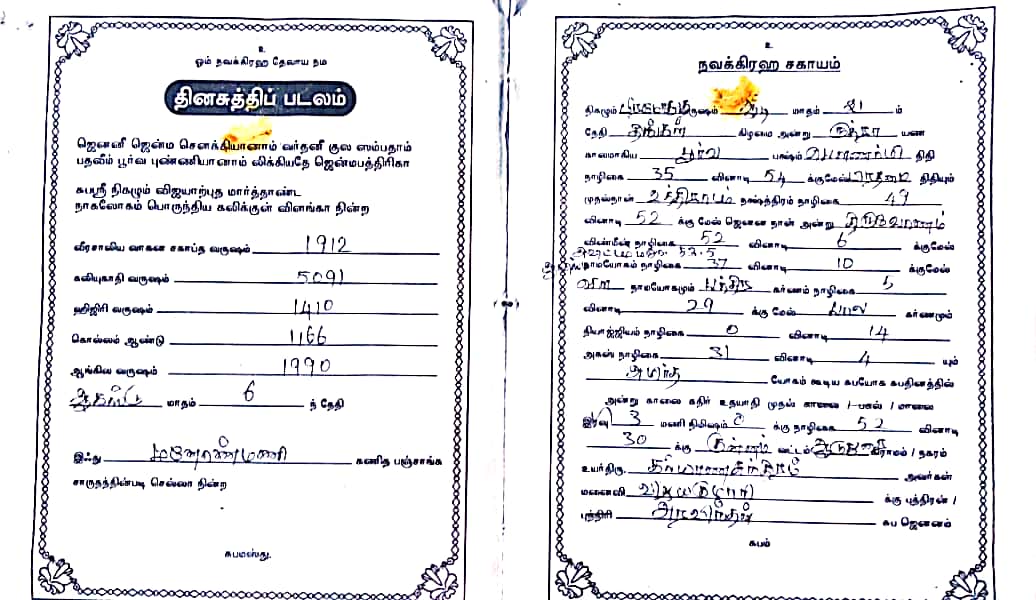 உ
ஓம் நவக்கிரஹ தேவாய நம
தினசுத்திப் படலம்
ஜெனனீ ஜென்ம சௌக்கியானாம் வர்தனீ குல ஸம்பதாம்
பதவீம் பூர்வ புண்ணியானாம் லிக்கியதே ஜென்மபத்திரிகா
சுபஸ்ரீ நிகழும் விஜயாற்புத மார்த்தாண்ட
நாகலோகம் பொருந்திய கலிக்குள் விளங்கா நின்ற
வீரசாலிய வாகன சகாப்த வருஷம் 1912
கலியுகாதி வருஷம் 5091
ஹிஜிரி வருஷம் 1410
கொல்லம் ஆண்டு 1166
ஆங்கில வருஷம் 1990
ஆகஸ்டு மாதம் 6 ந் தேதி
இஃது கணித பஞ்சாங்க
சாருதத்தின்படி செல்லா நின்ற
சுபமஸ்து.
உ
நவக்கிரஹ சகாயம்
நிகழும் வருஷம் ஆடி மாதம் 21 ம்
தேதி திங்கள் கிழமை அன்று யண
காலமாகிய பூர்வ பக்ஷம் பௌர்ணமி திதி
நாழிகை 35 வினாடி 54 க்குமேல் பிரதமை திதியும்
முதல்நாள் உத்திராடம் நக்ஷத்திரம் நாழிகை 49
வினாடி 52 க்கு மேல் ஜெனன நாள் அன்று திருவோணம்
விண்மீன் நாழிகை 52 வினாடி 6 க்குமேல்
நாமயோகம் நாழிகை 37 வினாடி 10 க்குமேல்
நாமயோகமும் பத்திரை கரணம் நாழிகை 5
வினாடி 29 க்கு மேல் பாலவ கரணமும்
தியாஜ்ஜியம் நாழிகை 0 வினாடி 14
அகஸ் நாழிகை 31 வினாடி 4 யும்
அமிர்த யோகம் கூடிய சுபயோக சுபதினத்தில்
அன்று காலை கதிர் உதயாதி முதல் காலை / பகல் / மாலை
இரவு 3 மணி நிமிஷம் க்கு நாழிகை 52 வினாடி
30 க்கு வட்டம் கிராமம் / நகரம்
உயர்திரு. அவர்கள்
மனைவி க்கு புத்திரன் /
புத்திரி அரவிந்தன் சுப ஜெனனம்
சுபம்